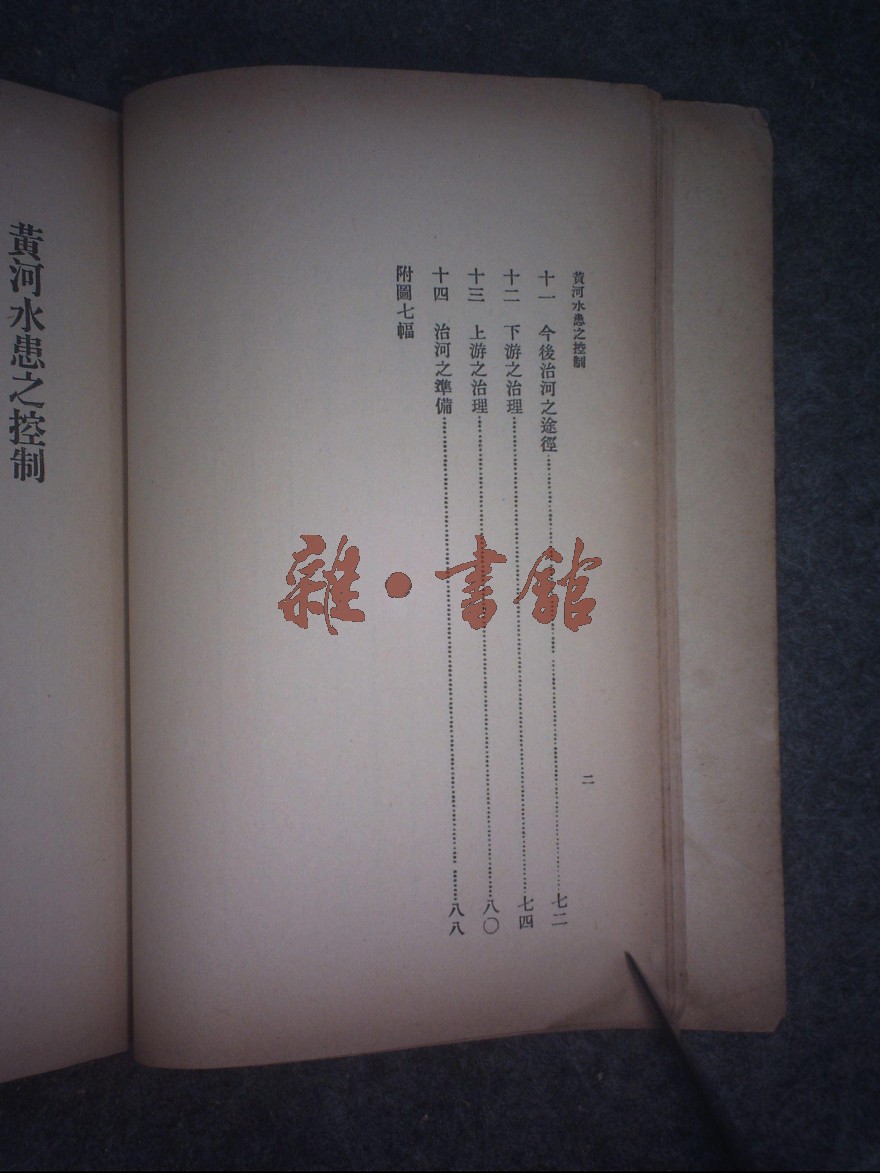 黃河水患之控制
二
十一 今後治河之途徑……七二
十二 下游之治理……七四
十三 上游之治理……八〇
十四 治河之準備……八八
附圖七幅
黃河水患之控制
雜·書館